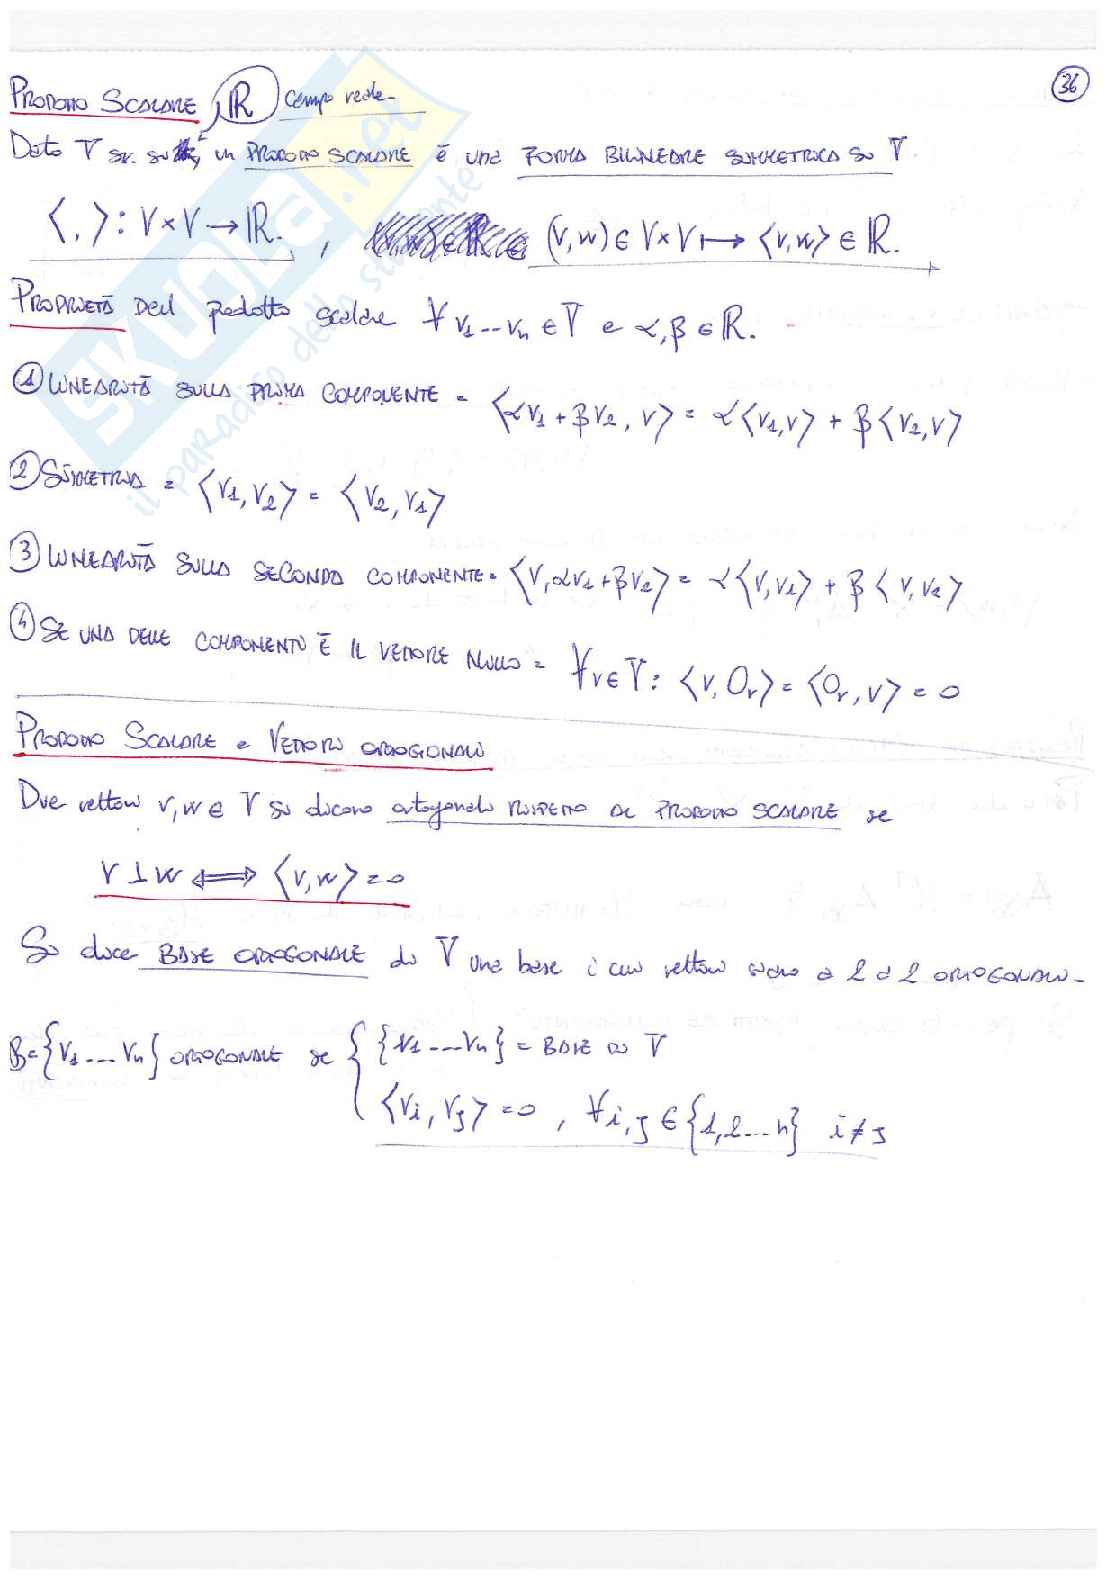 36
PRODOTTO SCALARE, ℝ campo reale-
Dato V s.v. su, un PRODOTTO SCALARE è una FORMA BILINEARE SIMMETRICA SU V
⟨,⟩: V×V→ℝ. , (v,w)∈V×V↦⟨v,w⟩∈ℝ.
PROPRIETÀ del prodotto scalare ∀v₁...vₙ∈V e α,β∈ℝ.
① LINEARITÀ SULLA PRIMA COMPONENTE = ⟨αv₁+βv₂, v⟩ = α⟨v₁,v⟩ + β⟨v₂,v⟩
② SIMMETRIA = ⟨v₁,v₂⟩ = ⟨v₂,v₁⟩
③ LINEARITÀ SULLA SECONDA COMPONENTE = ⟨v,αv₁+βv₂⟩ = α⟨v,v₁⟩ + β⟨v,v₂⟩
④ SE UNA DELLE COMPONENTI È IL VETTORE NULLO = ∀v∈V: ⟨v,0ᵥ⟩=⟨0ᵥ,v⟩=0
PRODOTTO SCALARE e VETTORI ORTOGONALI
Due vettori v,w∈V si dicono ortogonali RISPETTO AL PRODOTTO SCALARE se
v⊥w ⟺ ⟨v,w⟩=0
Si dice BASE ORTOGONALE di V una base i cui vettori siano a 2 a 2 ORTOGONALI-
B={v₁...vₙ} ORTOGONALE se { {v₁...vₙ} = BASE DI V
⟨vᵢ,vⱼ⟩=0, ∀i,j∈{1,2...n} i≠j
SKUOLA.net
il paradiso dello studente